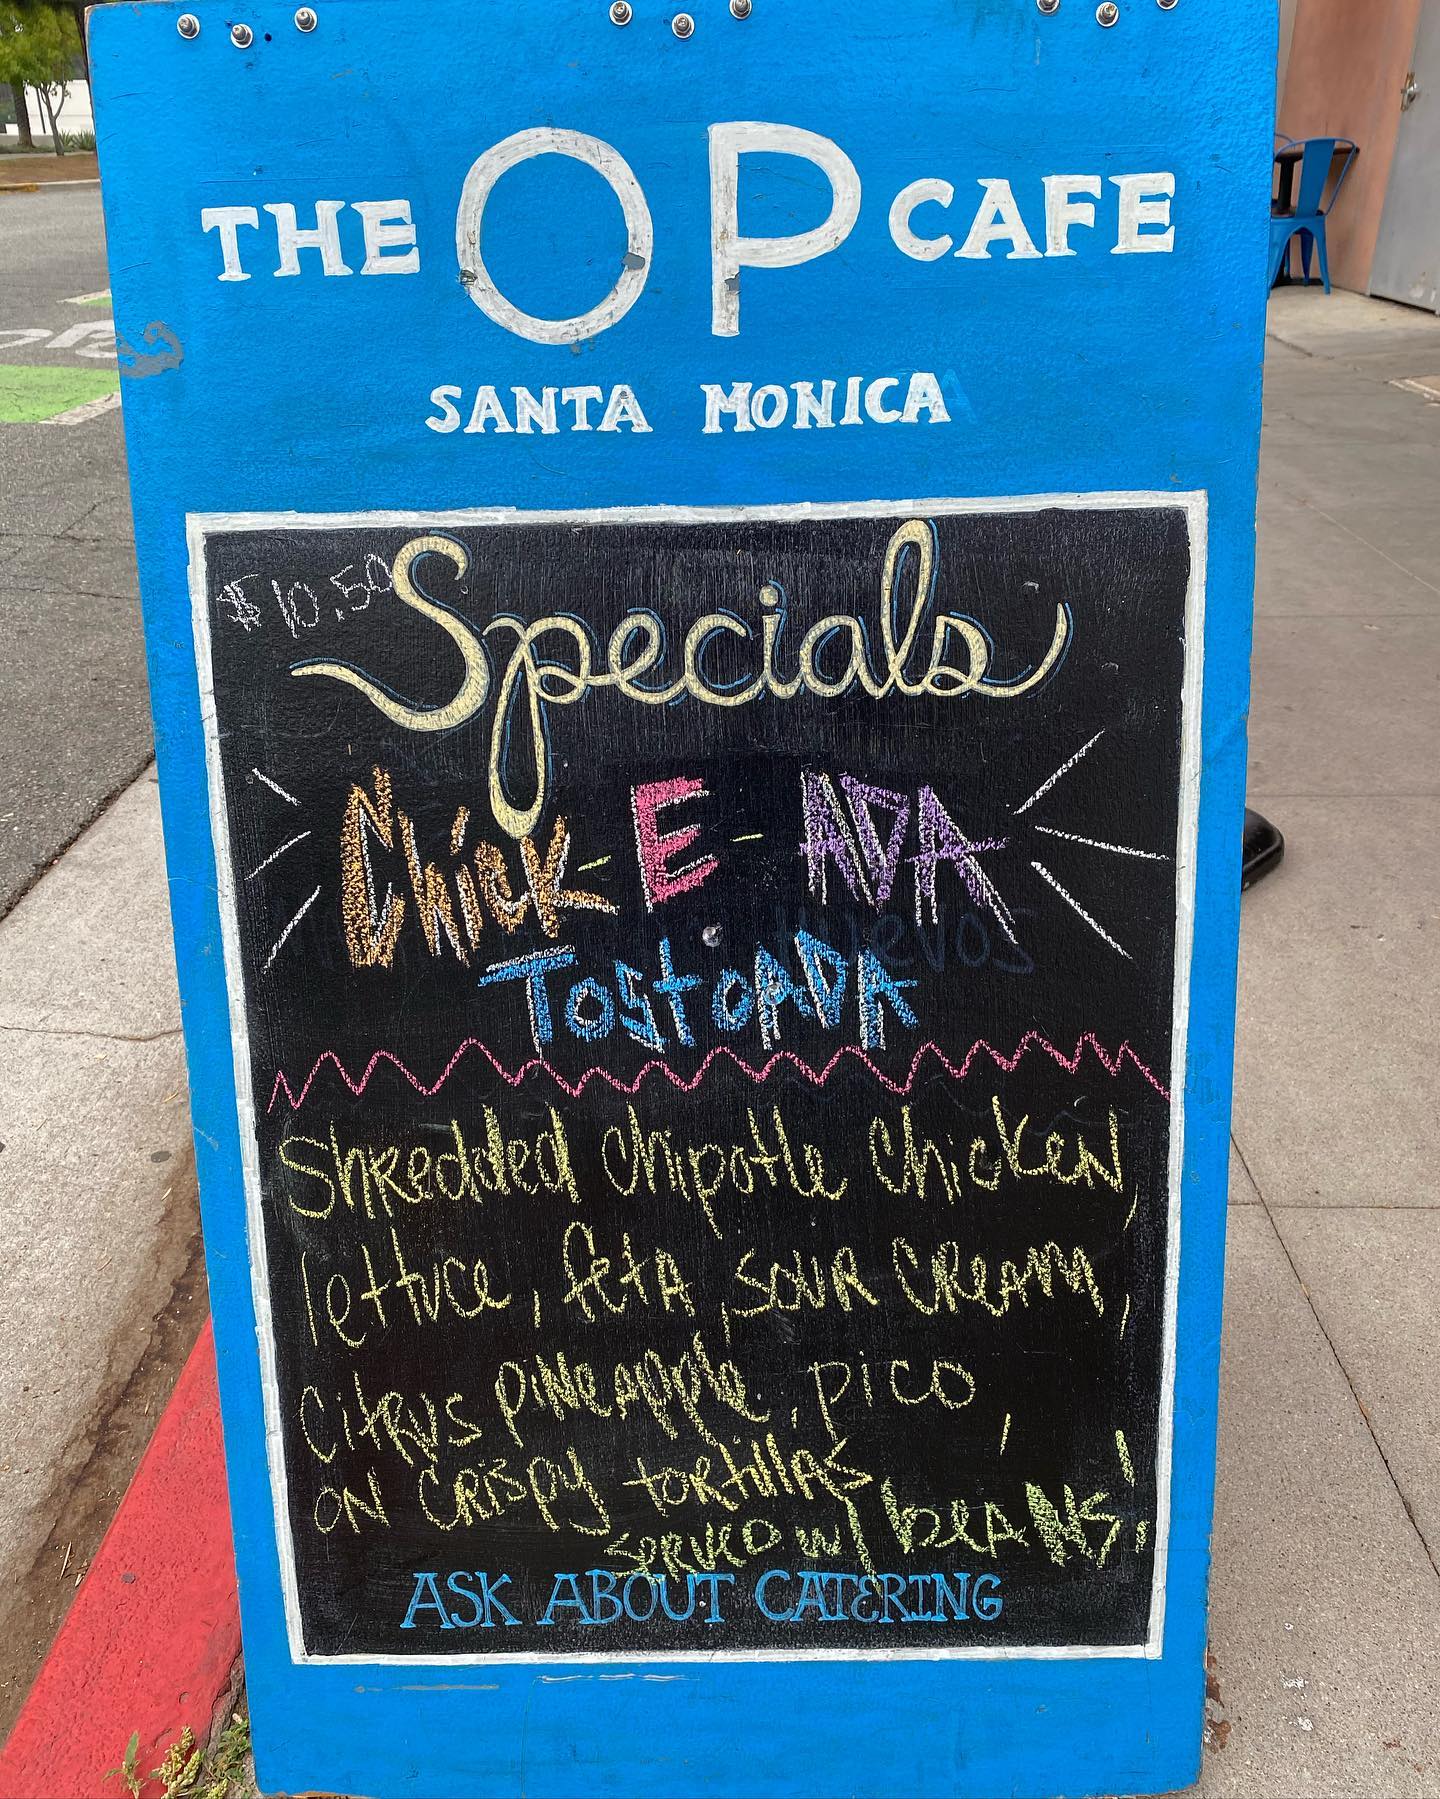 THE OP CAFE
SANTA MONICA
$10.50
Specials
Chick-E-ADA
TostoADA
Shredded Chipotle Chicken,
lettuce, fetA, SOUR CREAM,
CitRUS PiNeapple, pico
ON CRispy tortillAS
SERVED w/ beANS!
ASK ABOUT CATERING